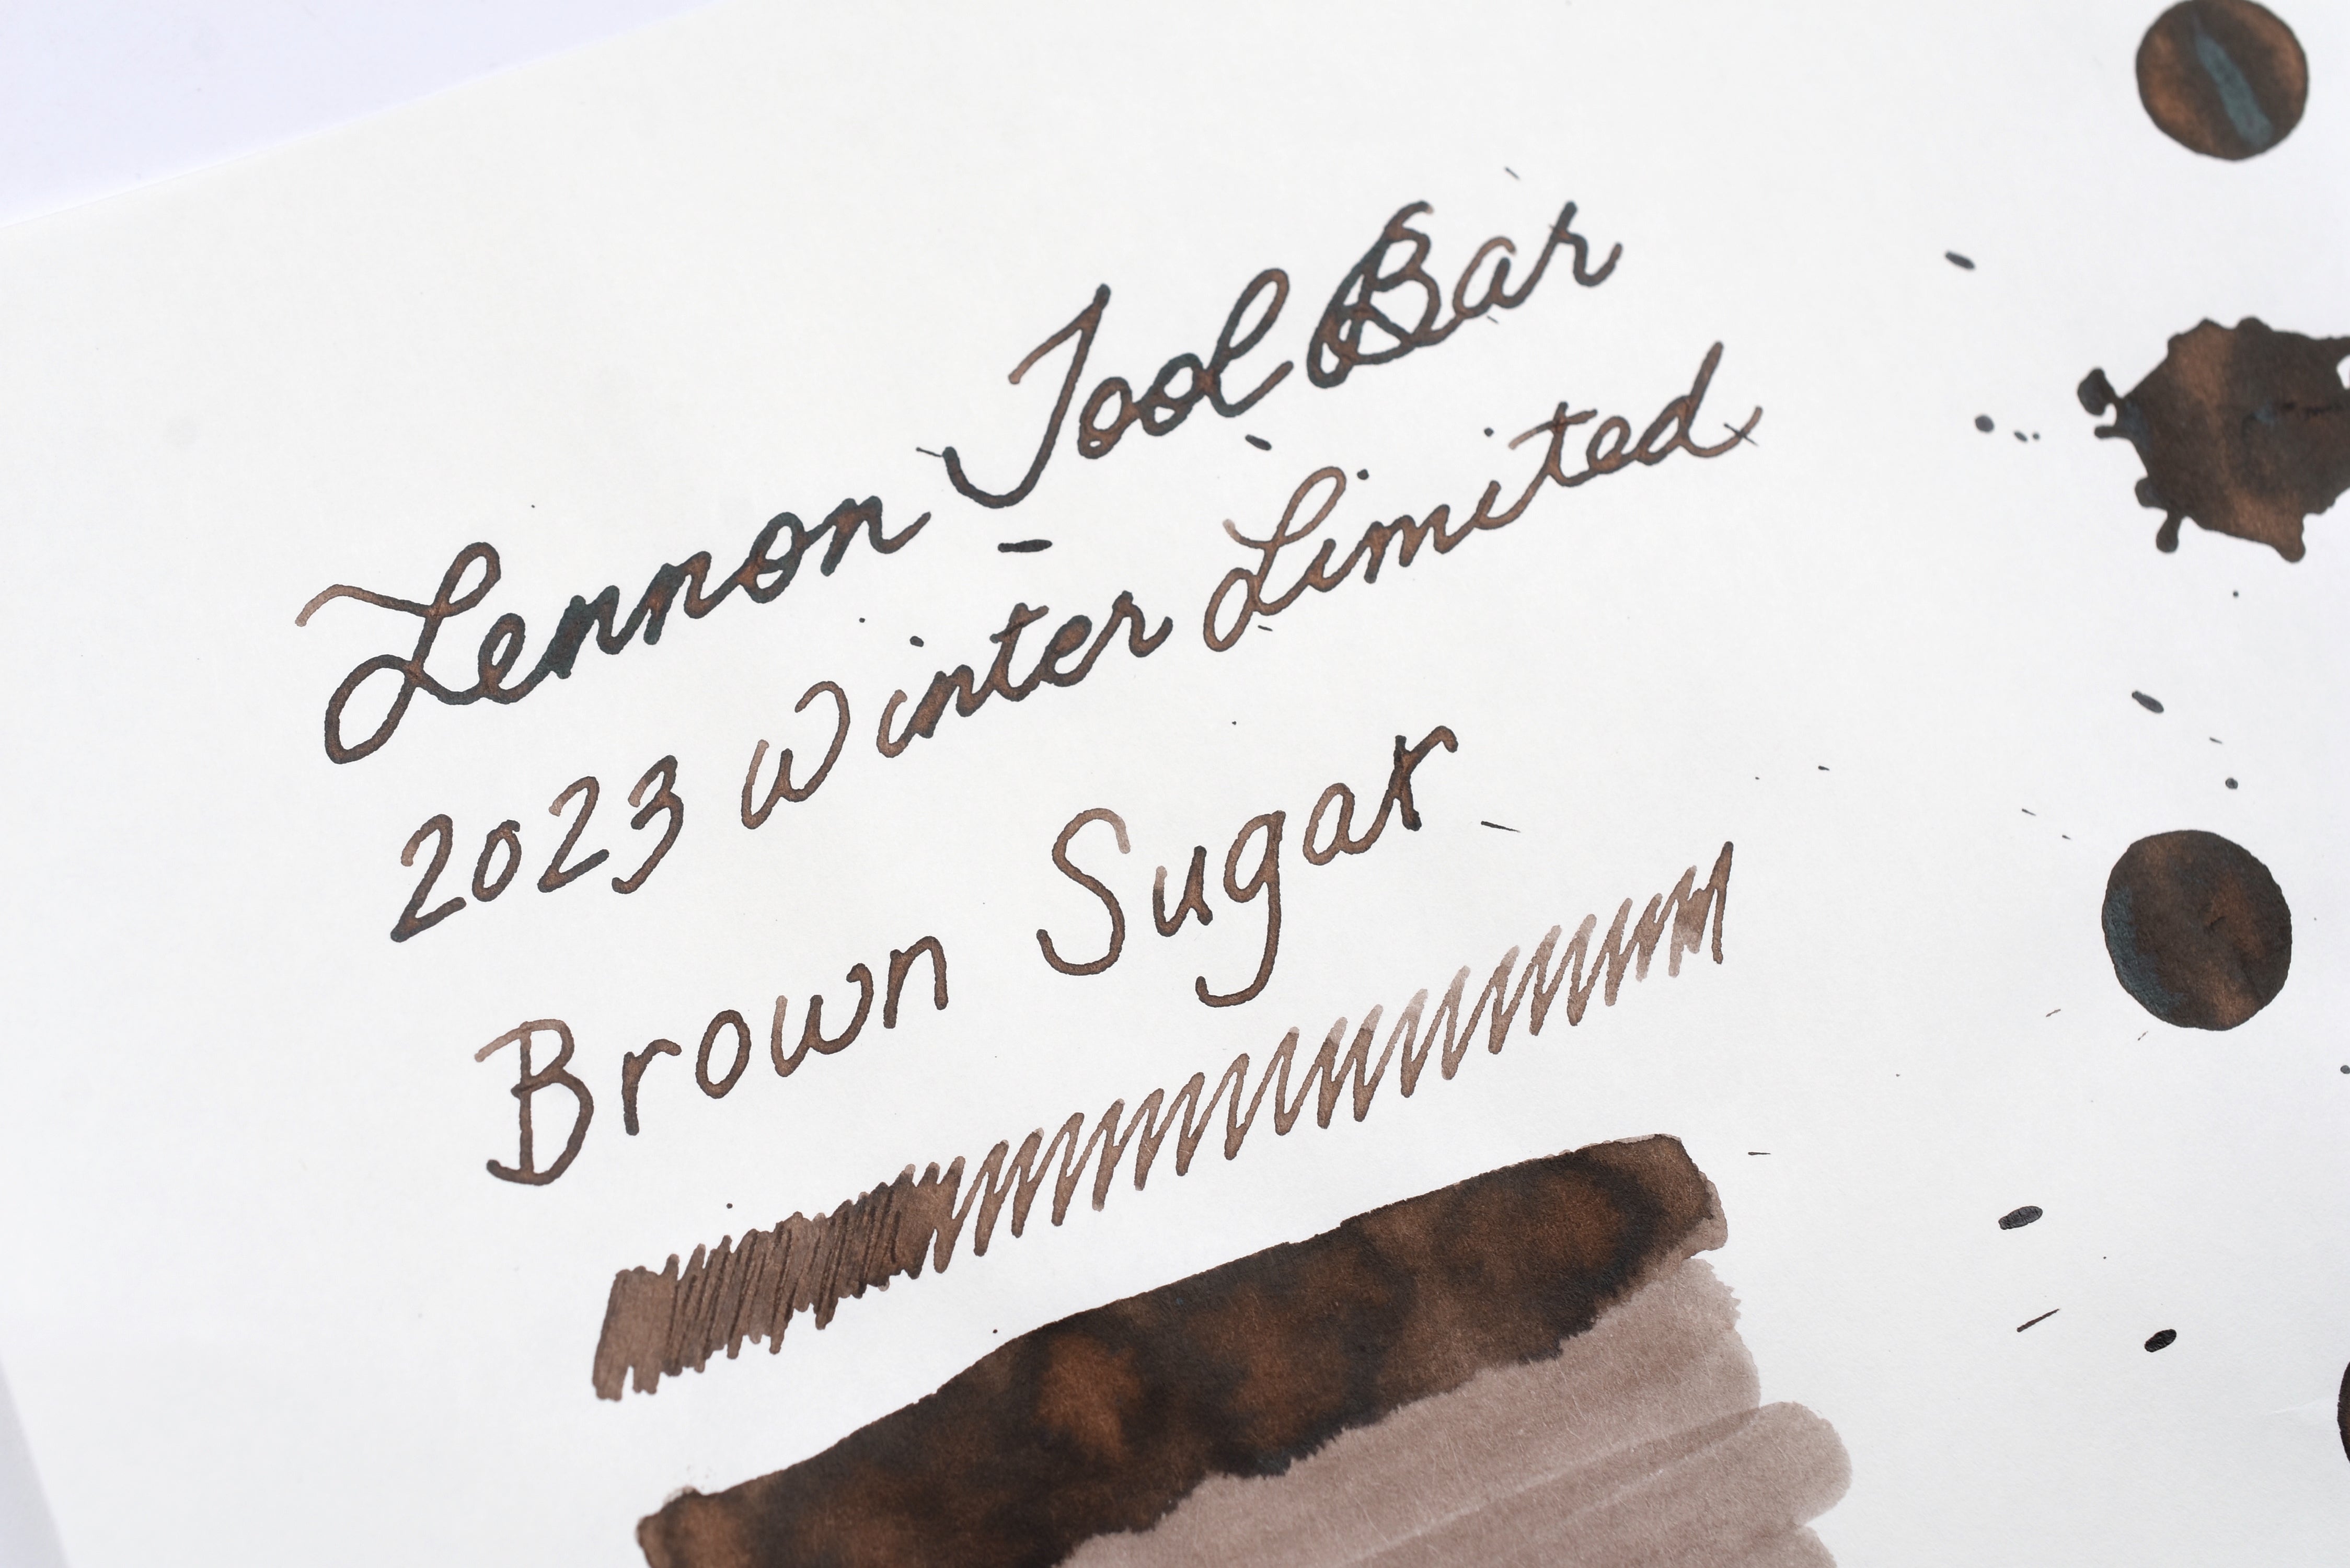 Lennon Tool Bar
2023 Winter Limited
Brown Sugar